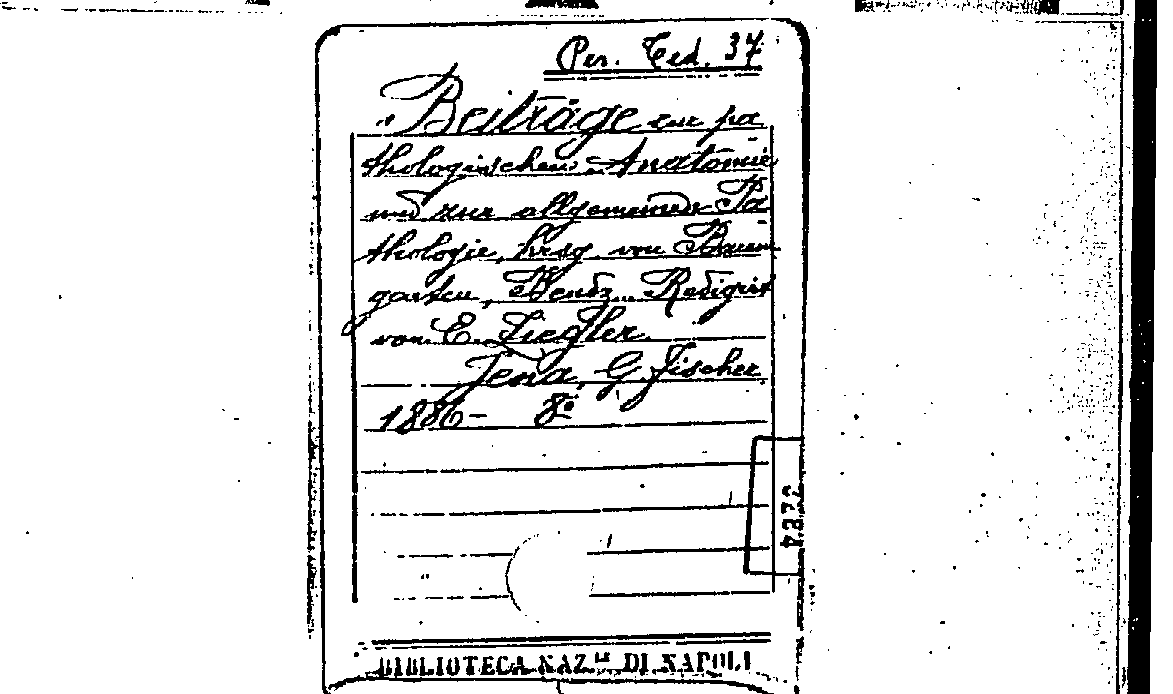 Per. Ted. 37
"Beiträge zur pa
thologischen Anatomie
und zur allgemeinen Pa
thologie, hrsg. von Baum
garten, Redigirt
von E. Ziegler
Jena, G. Fischer
1886- 8º
4272
BIBLIOTECA NAZ.LE DI NAPOLI